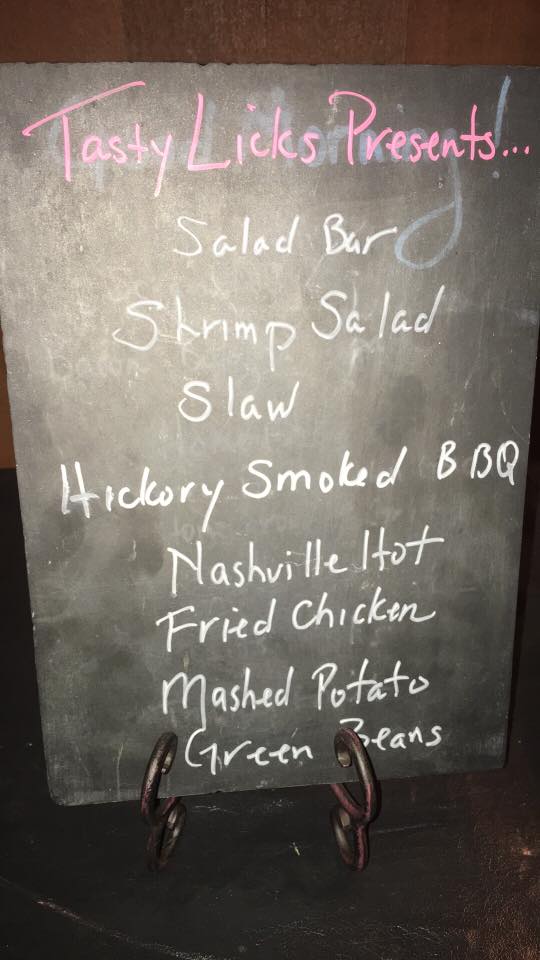 Tasty Licks Presents...
Salad Bar
Shrimp Salad
Slaw
Hickory Smoked BBQ
Nashville Hot
Fried Chicken
Mashed Potato
Green Beans